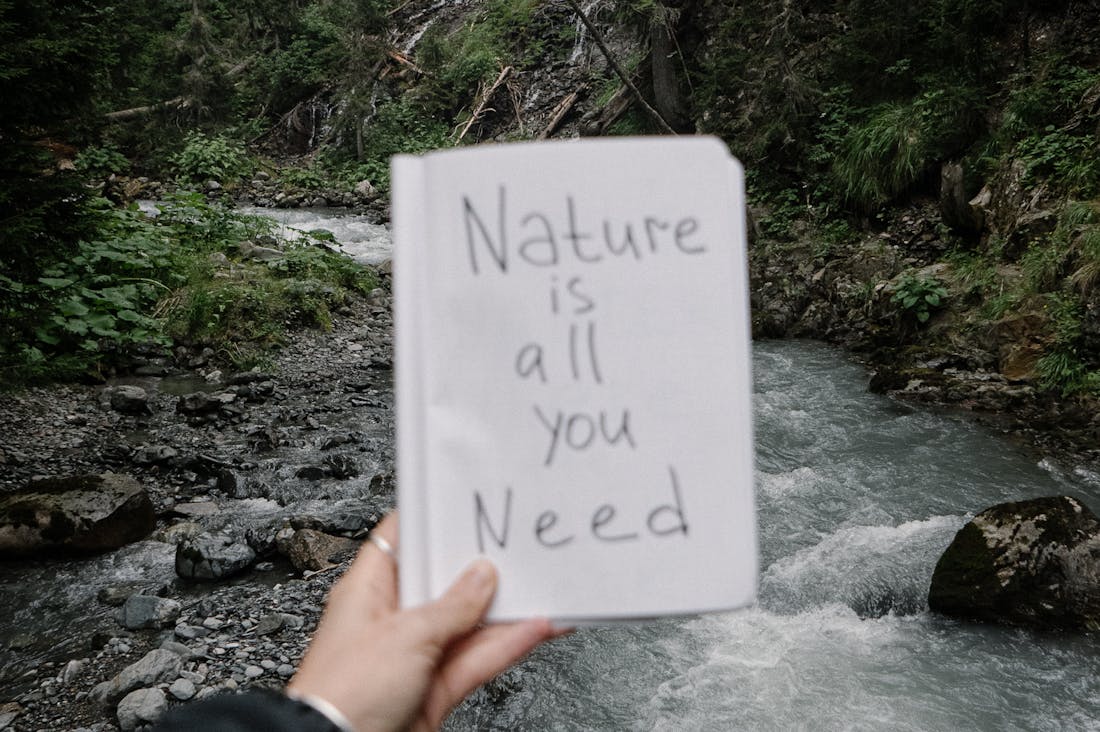 Nature
is
all
you
Need